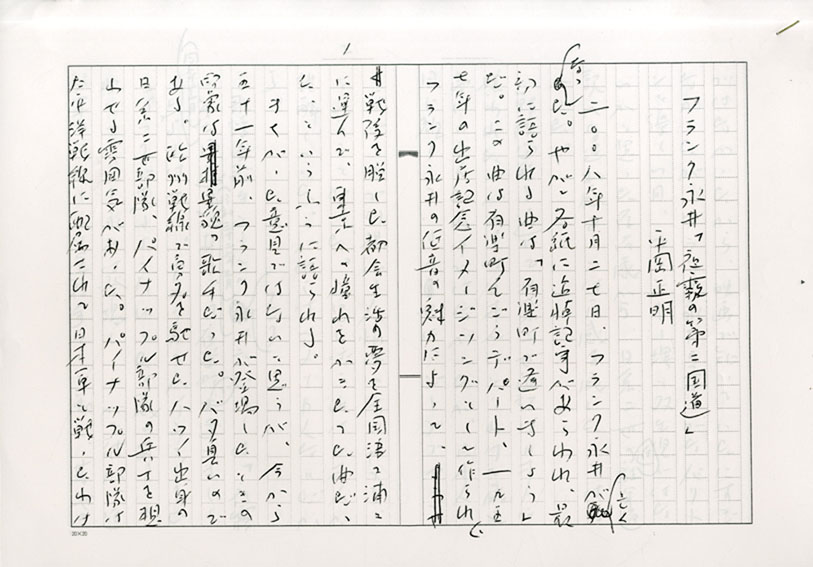 1
フランク永井「夜霧の第二国道」
平岡正明
二〇〇八年十月二七日、フランク永井が亡く
なった。やがて各紙に追悼記事があらわれ、最
初に語られる曲は「有楽町で逢いましょう」
だ。この曲は有楽町そごうデパート、一九五
七年の出店記念イメージソングとして作られ、
フランク永井の低音の魅力によって、
戦後を脱した都会生活の夢を全国津々浦々
に運んで、東京への憧れをかきたてた曲だ、
というふうに語られる。
まちがった意見ではないと思うが、今から
五十一年前、フランク永井が登場したときの
印象は異貌の歌手だった。バタ臭いので
ある。欧州戦線で勇名を馳せた、ハワイ出身の
日系二世部隊、パイナップル部隊の兵士を想
わせる雰囲気があった。パイナップル部隊は
太平洋戦線に配備されて日本軍と戦ったわけ
20×20